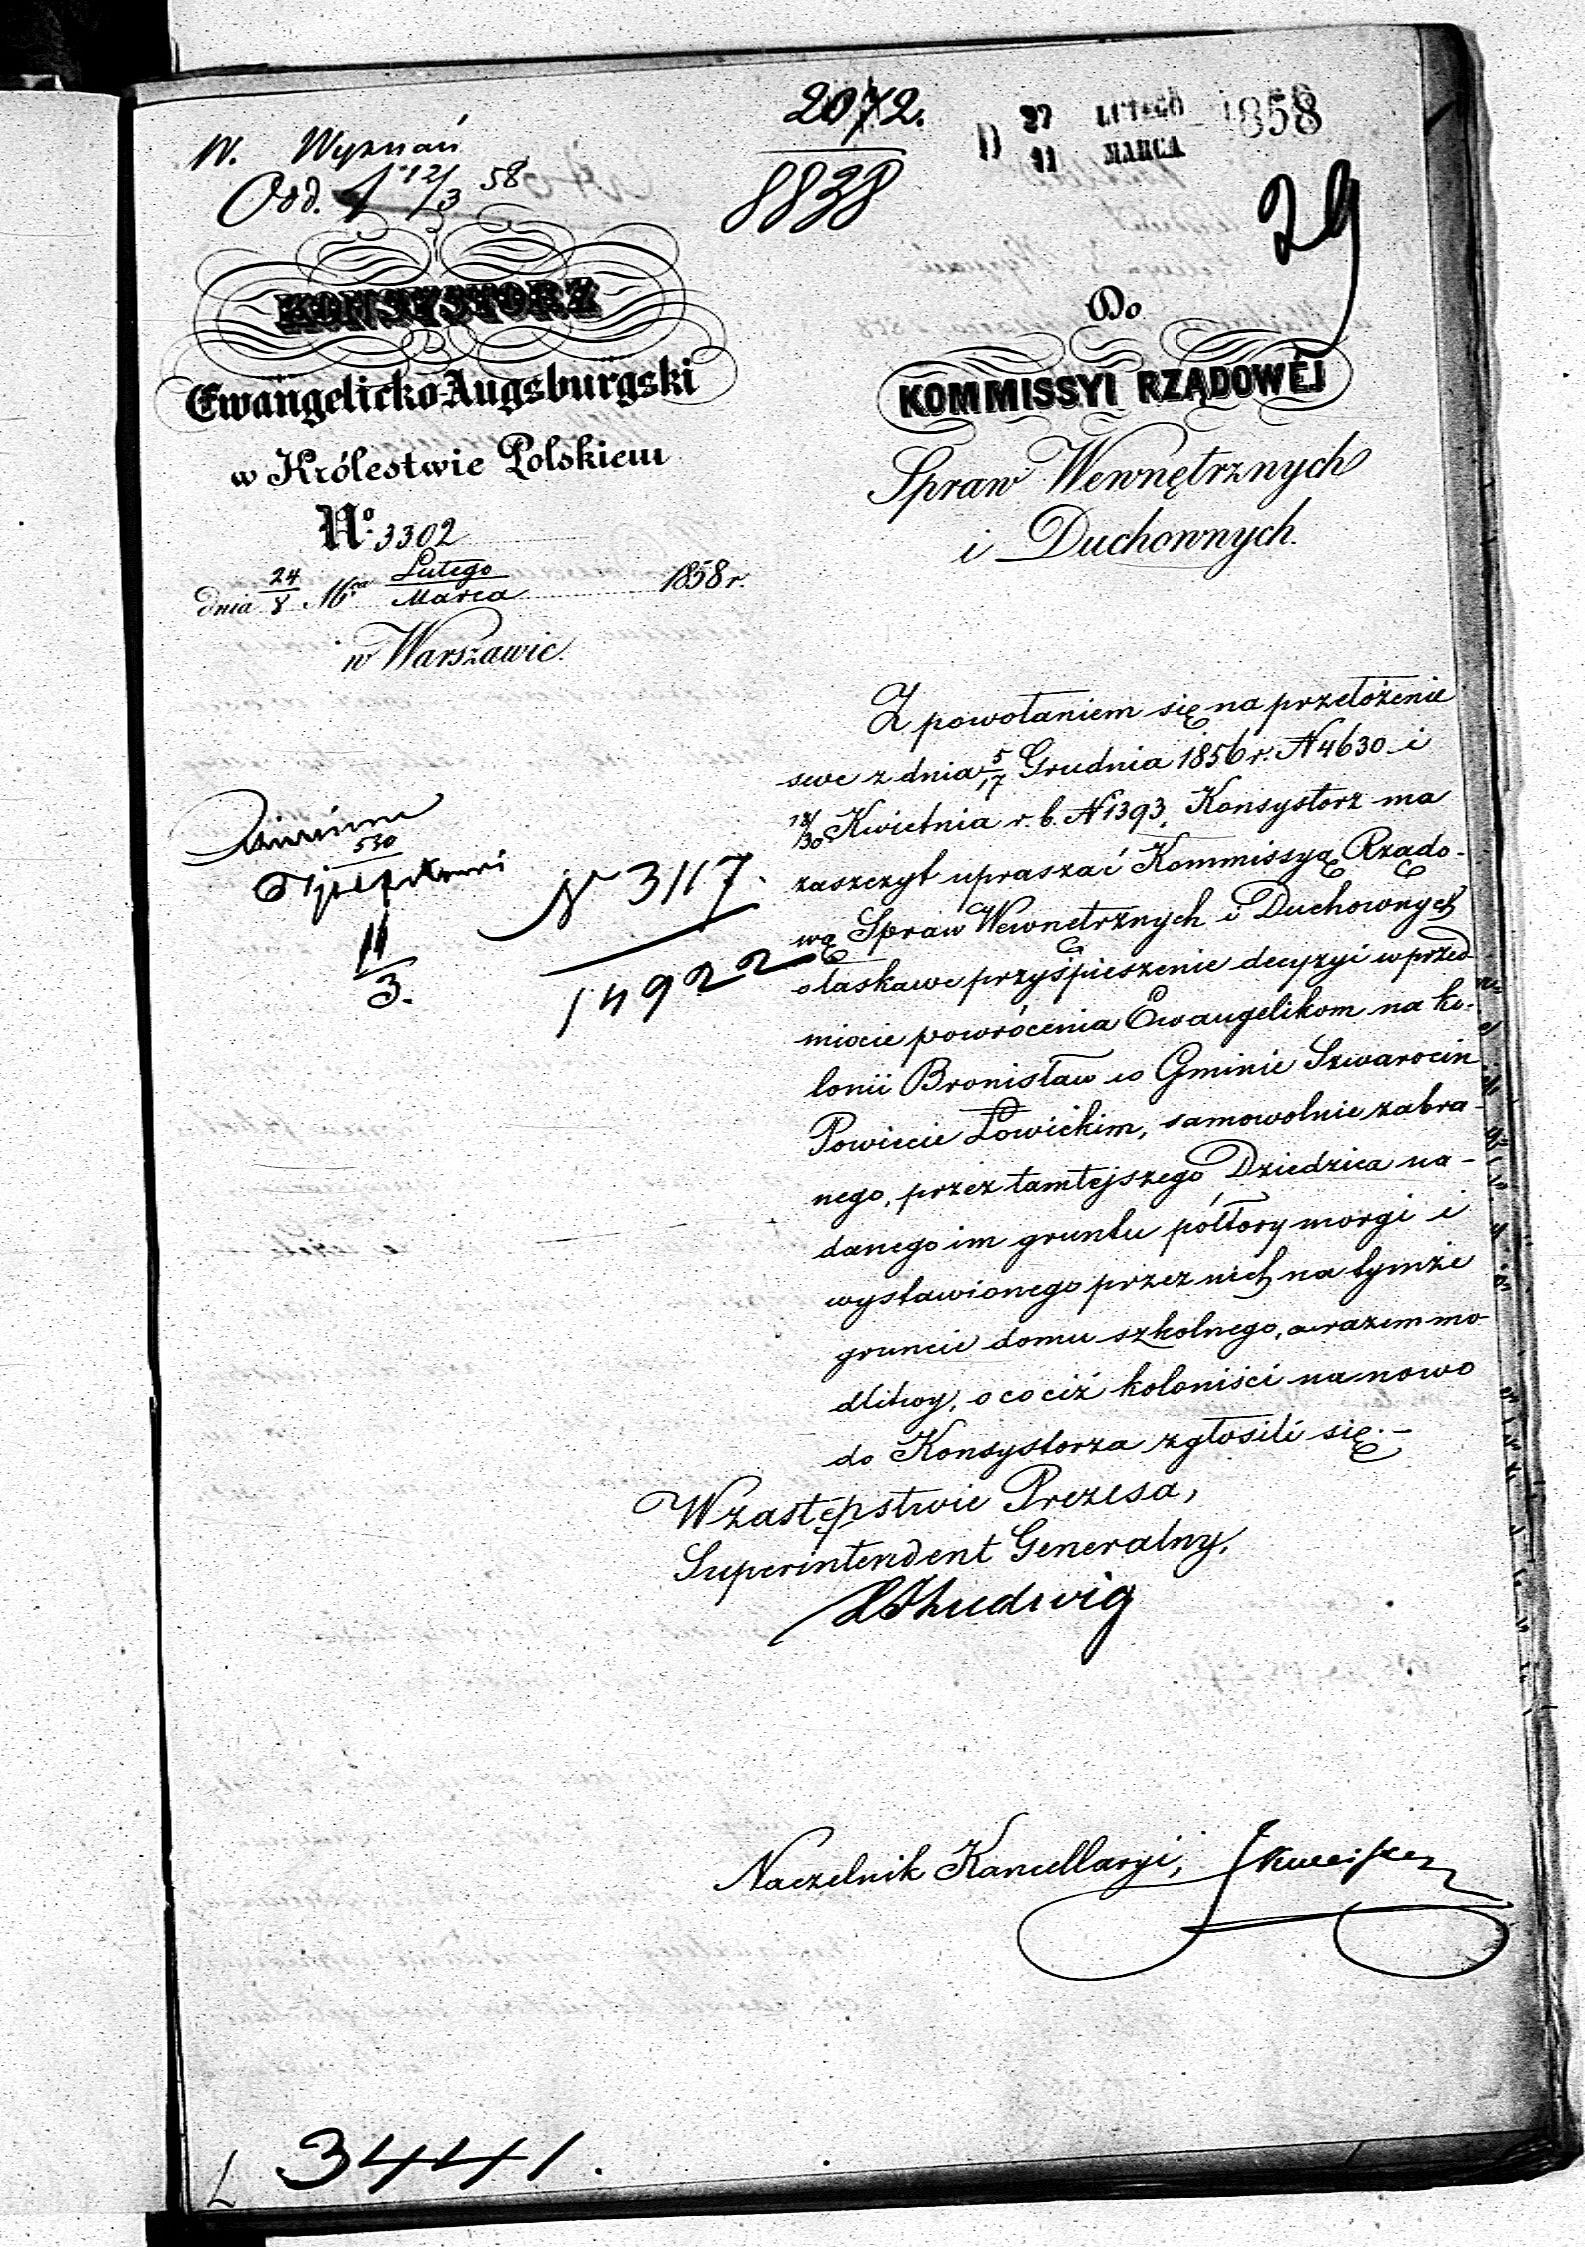 W. Wyznań
Odd. 1 12/3 58
2072.
8838
D 27 LUTEGO 1858
11 MARCA
29
KONSYSTORZ
Ewangelicko-Augsburgski
w Królestwie Polskiem
No. 3302
dnia 24/8 Mca Lutego/Marca 1858 r.
w Warszawie.
Do
KOMMISSYI RZĄDOWÉJ
Spraw Wewnętrznych
i Duchownych.
530
11
3.
N 3117.
14922
Z powołaniem się na przełożenie
swe z dnia 5/17 Grudnia 1856 r. N 4630 i
18/30 Kwietnia r. b. N 1393, Konsystorz ma
zaszczyt upraszać Kommissyą Rządo-
wą Spraw Wewnętrznych i Duchownych
o łaskawe przyśpieszenie decyzyi w przed
miocie powrócenia Ewangelikom na ko-
lonii Bronisław w Gminie Szwarocin
Powiecie Łowickim, samowolnie zabra-
nego, przez tamtejszego Dziedzica na-
danego im gruntu półtory morgi i
wystawionego przez nich na tymże
gruncie domu szkolnego, a razem mo
dlitwy, o co ciż koloniści na nowo
do Konsystorza zgłosili się.-
W zastępstwie Prezesa,
Superintendent Generalny,
Ludwig
Naczelnik Kancellaryi,
L 3441.